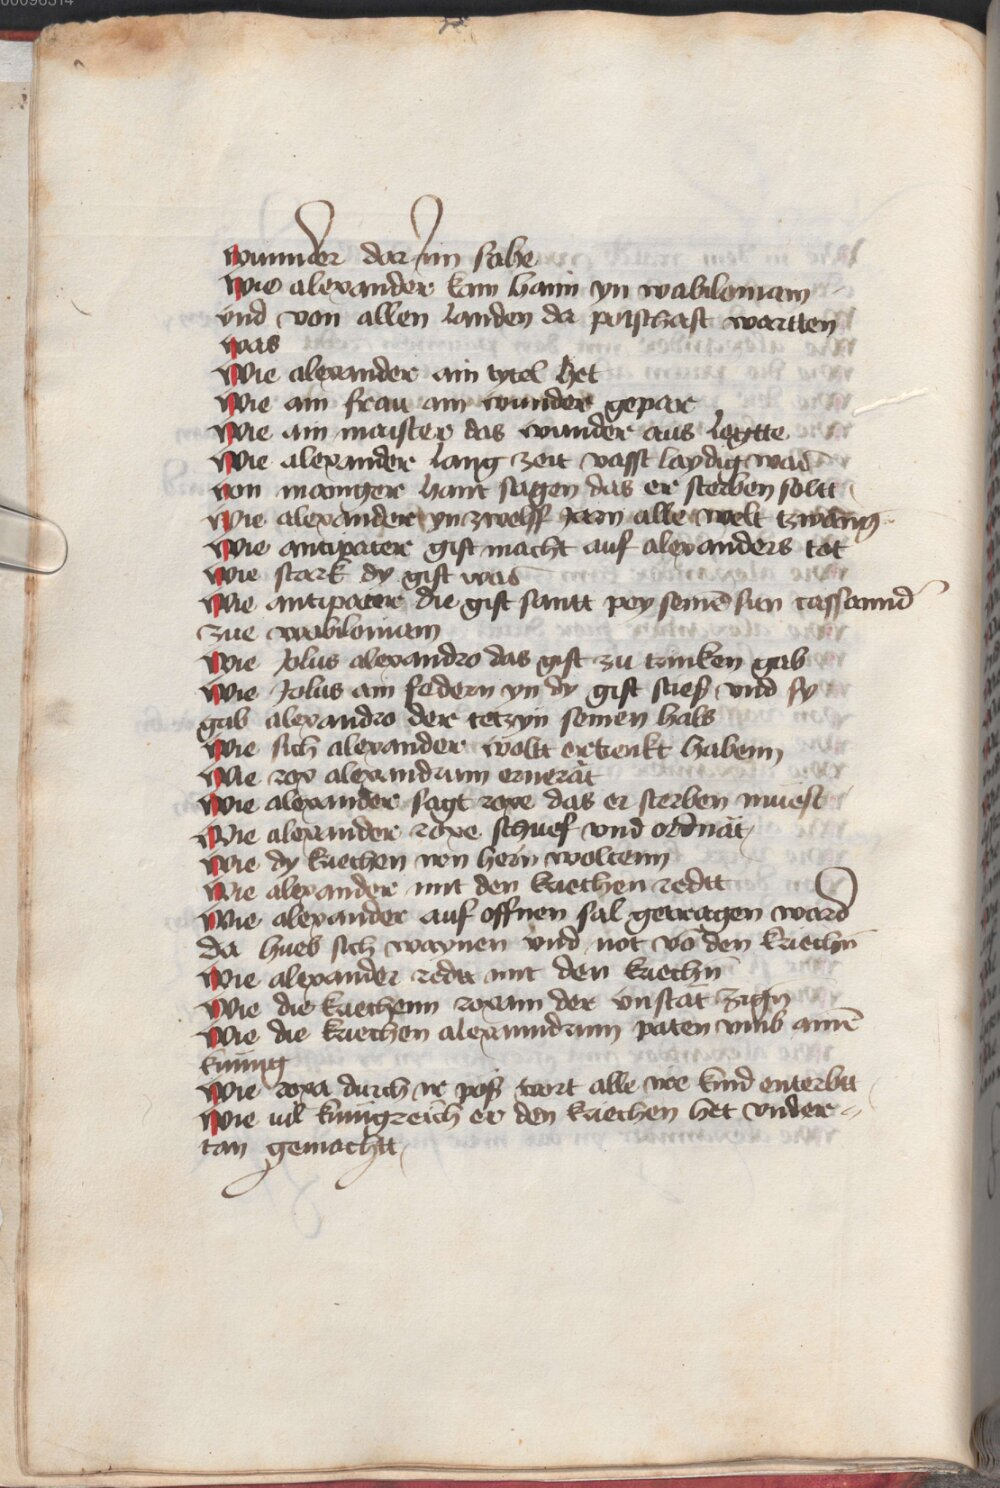 wunnder dar inn sahe
Wie alexander kam haim yn wabiloniam
vnd von allen landen da potschaft wartten
was
Wie alexander ain tytel het
Wie ain frau ain wunder gepar
Wie ain maister das wunder aus legtte
Wie alexander lang zeit vasst laydig was
von maniger hant sagen das er sterben soltt
Wie alexander yn zwelff Jarn alle welt tzwang
Wie antipater gift macht auf alexanders tot
Wie stark dy gift was
Wie antipater die gift santt pey seinē sun cassannd
zue wabiloniam
Wie Jolus alexandro das gift zu trinken gab
Wie Jolus ain federn yn dy gift stieß vnd sy
gab alexandro der tetzyn seinen hals
Wie sich alexander woltt ertrenkt habenn
Wie rox alexandrum ernerät
Wie alexander sagt roxe das er sterben muest
Wie alexander roxe schuef vnd ordnät
Wie dy kriechen von hern woltenn
Wie alexander mit den kriechen redtt
Wie alexander auf offnen sal getragen ward
da hueb sich waynen vnd not vō den kriechn
Wie alexander redtt mit den kriechn
Wie die kriechenn roxann der vnstät zign
Wie die kriechen alexanndrum paten vmb ainē
kunig
Wie roxa durch ir poß wort alle ire kind enterbtt
Wie uil kunigreich er den kriechen het vnder=
tan gemachtt